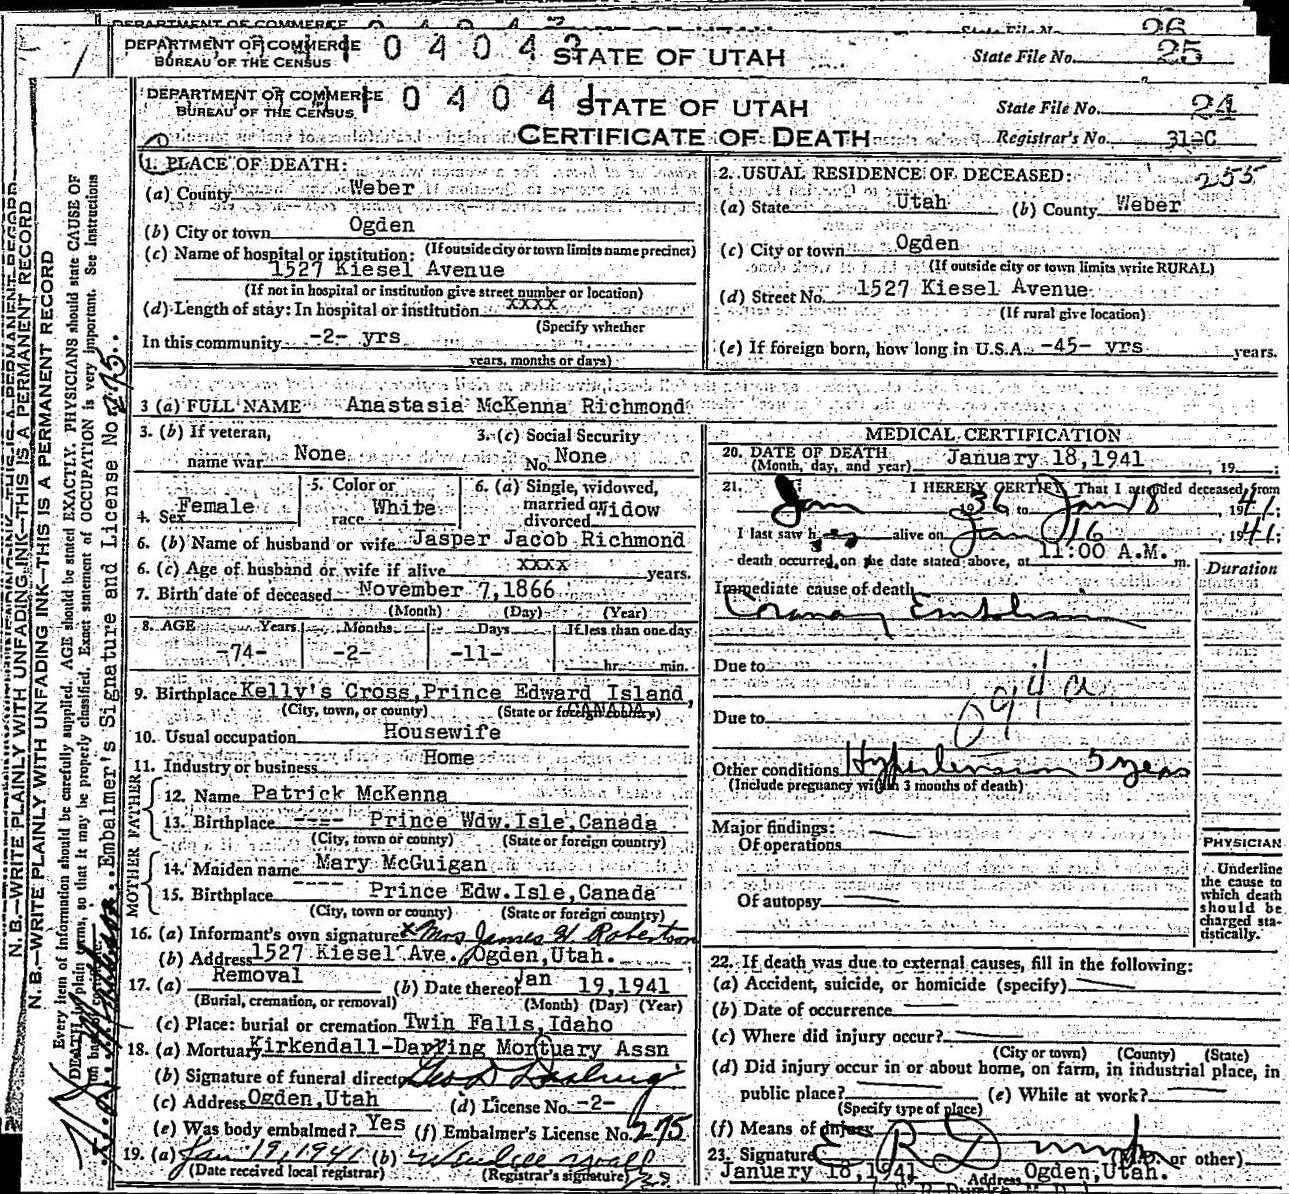 DEPARTMENT OF COMMERCE
State File No. 26
DEPARTMENT OF COMMERCE
BUREAU OF THE CENSUS
STATE OF UTAH
State File No. 25
DEPARTMENT OF COMMERCE
BUREAU OF THE CENSUS
STATE OF UTAH
State File No. 24
CERTIFICATE OF DEATH
Registrar's No. 31-C
1. PLACE OF DEATH:
(a) County Weber
(b) City or town Ogden
(If outside city or town limits name precinct)
(c) Name of hospital or institution:
1527 Kiesel Avenue
(If not in hospital or institution give street number or location)
(d) Length of stay: In hospital or institution xxxx
(Specify whether
In this community -2- yrs
years, months or days)
2. USUAL RESIDENCE OF DECEASED: 255
(a) State Utah (b) County Weber
(c) City or town Ogden
(If outside city or town limits write RURAL)
(d) Street No. 1527 Kiesel Avenue
(If rural give location)
(e) If foreign born, how long in U.S.A. -45- yrs years.
3 (a) FULL NAME Anastasia McKenna Richmond
3. (b) If veteran,
name war None
3. (c) Social Security
No. None
4. Sex Female
5. Color or
race White
6. (a) Single, widowed,
married or
divorced Widow
6. (b) Name of husband or wife Jasper Jacob Richmond
6. (c) Age of husband or wife if alive xxxx years.
7. Birth date of deceased November 7,1866
(Month) (Day) (Year)
8. AGE Years Months Days If less than one day
-74- -2- -11- hr. min.
9. Birthplace Kelly's Cross,Prince Edward Island,
CANADA
(City, town, or county) (State or foreign country)
10. Usual occupation Housewife
11. Industry or business Home
FATHER
12. Name Patrick McKenna
13. Birthplace ---- Prince Wdw.Isle,Canada
(City, town or county) (State or foreign country)
MOTHER
14. Maiden name Mary McGuigan
15. Birthplace ---- Prince Edw.Isle,Canada
(City, town or county) (State or foreign country)
16. (a) Informant's own signature x Mrs James H. Robertson
(b) Address 1527 Kiesel Ave. Ogden,Utah.
17. (a) Removal (b) Date thereof Jan 19,1941
(Burial, cremation, or removal) (Month) (Day) (Year)
(c) Place: burial or cremation Twin Falls,Idaho
18. (a) Mortuary Kirkendall-Darling Mortuary Assn
(b) Signature of funeral director Geo D Darling
(c) Address Ogden,Utah (d) License No. -2-
(e) Was body embalmed? Yes (f) Embalmer's License No. 275
19. (a) Jan 19, 1941 (b)
(Date received local registrar) (Registrar's signature)
MEDICAL CERTIFICATION
20. DATE OF DEATH
(Month, day, and year) January 18,1941 , 19 ;
21. I HEREBY CERTIFY That I attended deceased from
Jan 36 to Jan 18, 1941;
I last saw her alive on Jan 16, 1941;
death occurred on the date stated above, at 11:00 A.M. m.
Duration
Immediate cause of death
Coronary Embolism
Due to
094a
Due to
Other conditions Hypertension 5 years
(Include pregnancy within 3 months of death)
Major findings:
Of operations
Of autopsy
PHYSICIAN
Underline
the cause to
which death
should be
charged sta-
tistically.
22. If death was due to external causes, fill in the following:
(a) Accident, suicide, or homicide (specify)
(b) Date of occurrence
(c) Where did injury occur?
(City or town) (County) (State)
(d) Did injury occur in or about home, on farm, in industrial place, in
public place? (e) While at work?
(Specify type of place)
(f) Means of injury
23. Signature or other)
January 18,1941 Address Ogden,Utah.
N. B.—WRITE PLAINLY WITH UNFADING INK—THIS IS A PERMANENT RECORD
N. B.—WRITE PLAINLY WITH UNFADING INK—THIS IS A PERMANENT RECORD
Every item of information should be carefully supplied. AGE should be stated EXACTLY. PHYSICIANS should state CAUSE OF
DEATH in plain terms, so that it may be properly classified. Exact statement of OCCUPATION is very important. See Instructions
Embalmer's Signature and License No. 275